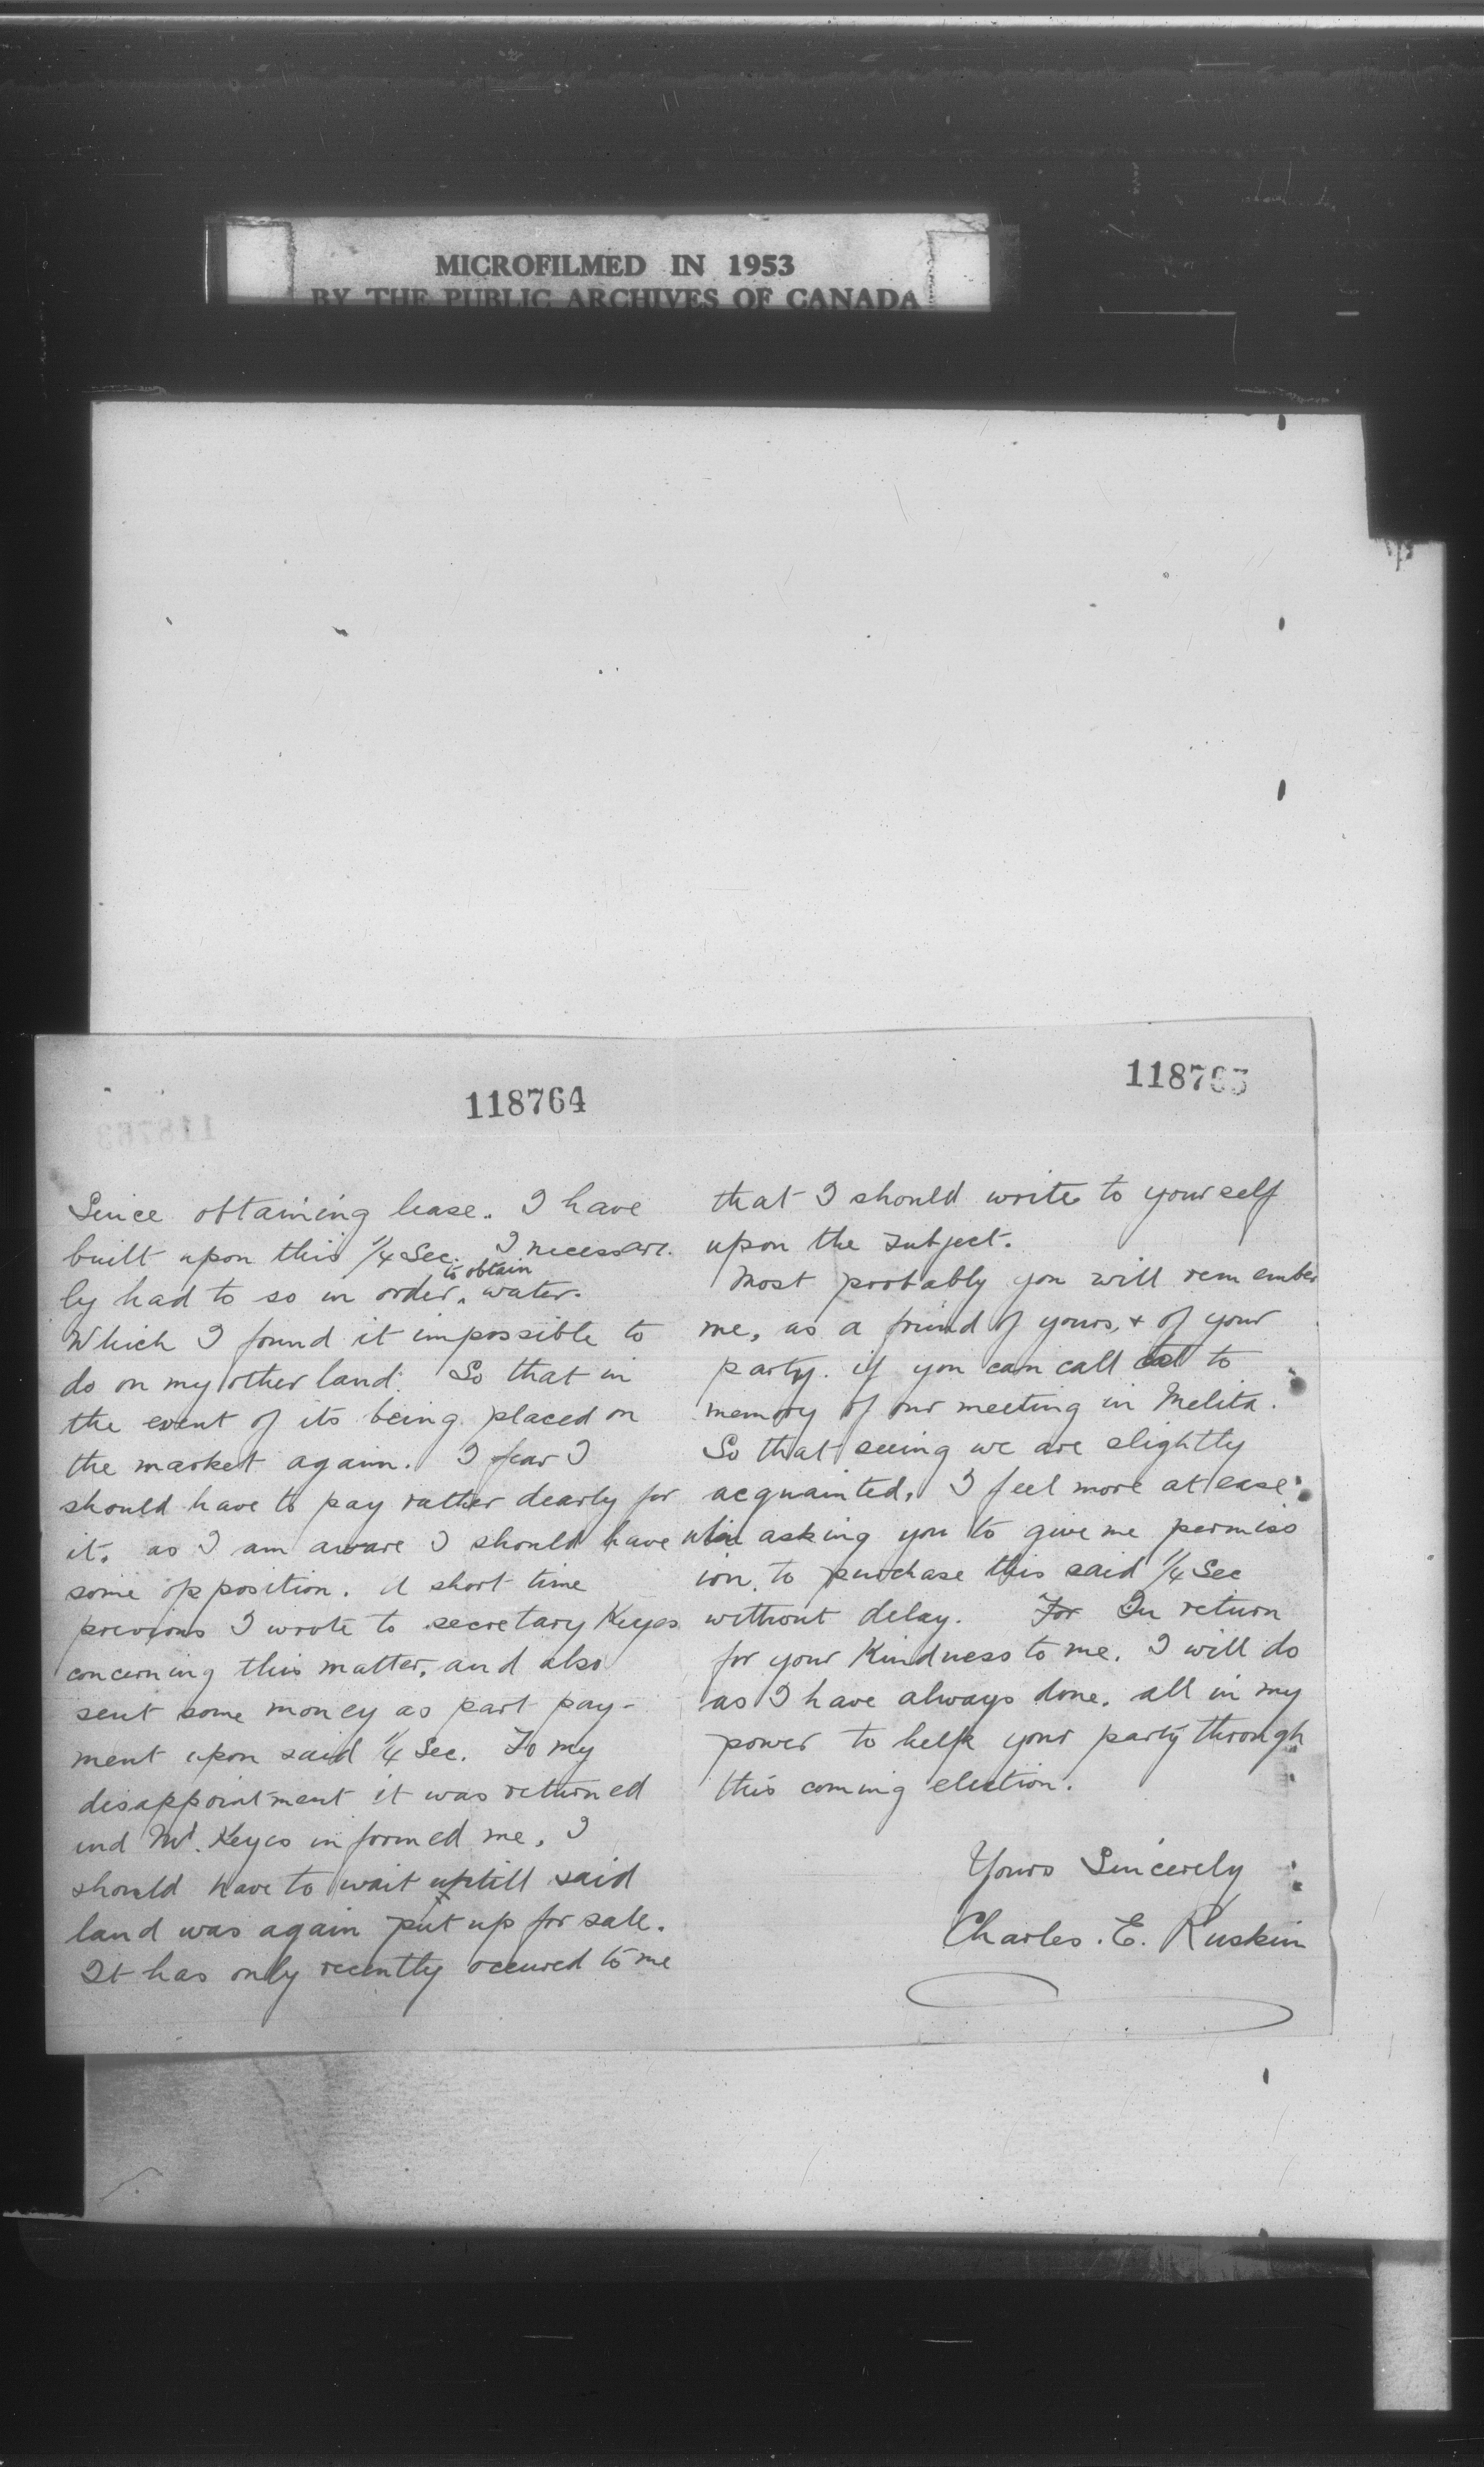 MICROFILMED IN 1953
BY THE PUBLIC ARCHIVES OF CANADA
118764
Since obtaining lease. I have
built upon this 1/4 Sec. I necessari-
ly had to so in order to obtain water.
Which I found it impossible to
do on my other land. So that in
the event of its being placed on
the market again. I fear I
should have to pay rather dearly for
it. as I am aware I should have
some opposition. A short time
previous I wrote to secretary Keyes
concerning this matter, and also
sent some money as part pay-
ment upon said 1/4 Sec. To my
disappointment it was returned
and Mr. Keyes informed me, I
should have to wait uptill said
land was again put up for sale.
It has only recently occured to me
118765
that I should write to yourself
upon the subject.
Most probably you will remember
me, as a friend of yours, & of your
party. if you can call to
memory of our meeting in Melita.
So that seeing we are slightly
acquainted, I feel more at ease
in asking you to give me permiss
ion, to purchase this said 1/4 Sec
without delay. For In return
for your Kindness to me. I will do
as I have always done. all in my
power to help your party through
this coming election.
Yours Sincerely
Charles. E. Ruskin